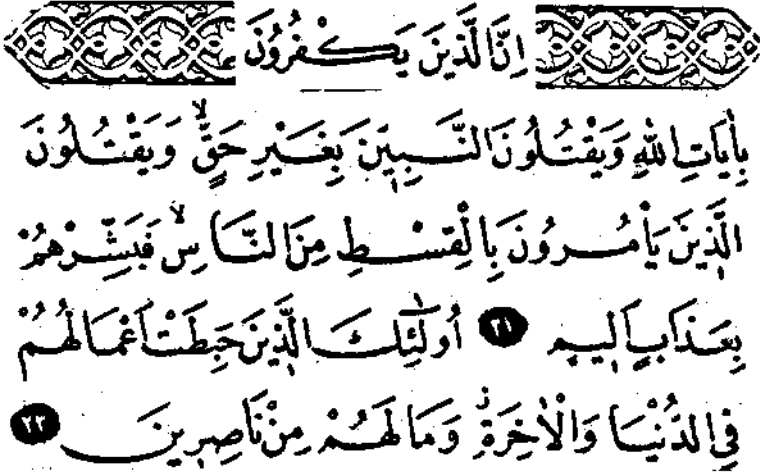 اِنَّ الَّذينَ يَكْفُرُونَ
بِاٰيَاتِ اللهِ وَيَقْتُلُونَ النَّبِيّنَ بِغَيْرِ حَقٍّۙ وَيَقْتُلُونَ
الَّذينَ يَاْمُرُونَ بِالْقِسْطِ مِنَ النَّاسِۙ فَبَشِّرْهُمْ
بِعَذَابٍ اَليمٍ ٢١ اُولٰٓئِكَ الَّذينَ حَبِطَتْ اَعْمَالُهُمْ
فِى الدُّنْيَا وَالْاٰخِرَةِۘ وَمَا لَهُمْ مِنْ نَاصِرينَ ٢٢